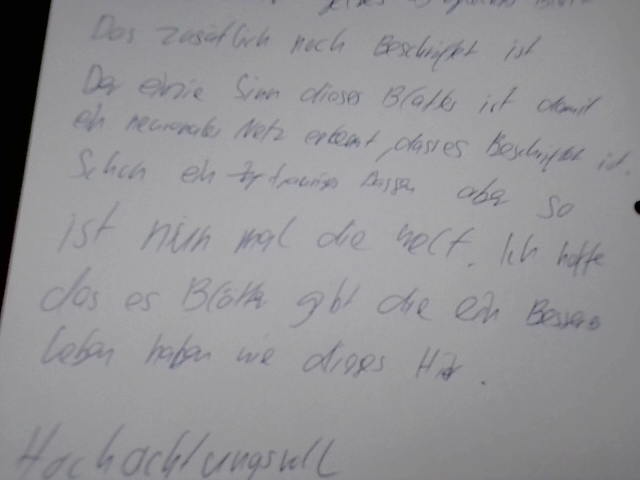 Das zusätlich noch Beschriftet ist
Der einzie Sinn dieses Blattes ist damit
ein neuronales Netz erkennt dass es Beschriftet ist.
Schon ein trauriges aber so
ist nun mal die welt. Ich hoffe
das es Blätter gibt die ein Besseres
leben haben wie dieses Hir.
Hochachtungsvoll